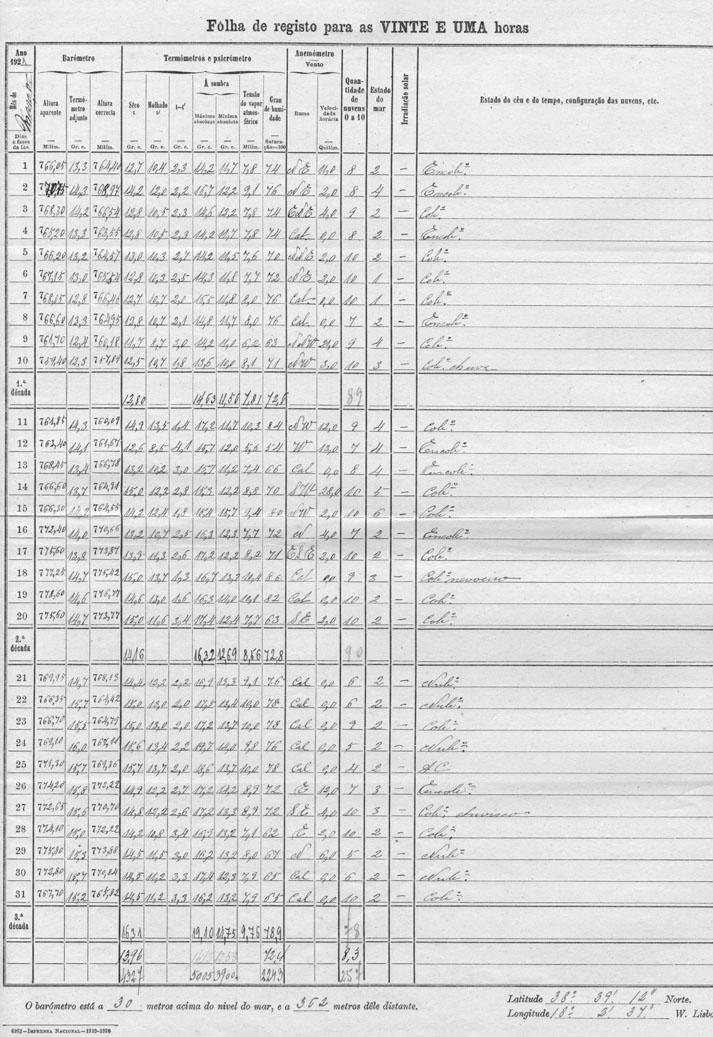 Fôlha de registo para as VINTE E UMA horas
Ano 192
Mês de
Dias e fases da lua
Barómetro
Altura aparente Milim.
Termómetro adjunto Gr. c.
Altura correcta Milim.
Termómetros e psicrómetro
Sêco t Gr. c.
Molhado t' Gr. c.
t—t' Gr. c.
À sombra
Máxima absoluta Gr. c.
Mínima absoluta Gr. c.
Tensão do vapor atmosférico Milim.
Grau de humidade Saturação=100
Anemómetro
Vento
Rumo
Velocidade horária Quilóm.
Quantidade de nuvens 0 a 10
Estado do mar
Irradiação solar
Estado do céu e do tempo, configuração das nuvens, etc.
1 766,05 13,3 764,40 12,7 10,4 2,3 14,2 11,7 7,8 74 NE 11,0 8 2 — Encobº
2 14,3 768,97 14,2 12,0 2,2 16,7 12,2 9,1 76 NE 2,0 8 4 — Encobº
3 768,30 14,2 766,54 12,8 10,5 2,3 14,6 12,2 7,8 74 ENE 4,0 9 2 — Cobº
4 765,20 13,3 763,55 12,8 10,5 2,3 14,2 11,7 7,8 74 Cal 0,0 8 2 — Encobº
5 766,20 13,2 764,57 13,0 10,3 2,7 14,2 10,5 7,6 70 NNE 2,0 10 2 — Cobº
6 767,15 13,0 12,8 10,3 2,5 14,3 11,8 7,7 72 NE 2,0 10 1 — Cobº
7 768,05 12,8 766,46 12,7 10,7 2,0 15,5 11,8 8,0 76 Cal 0,0 10 1 — Cobº
8 766,60 13,3 764,95 12,8 10,7 2,1 14,8 11,7 8,0 76 Cal 0,0 7 2 — Encobº
9 761,70 12,4 760,18 11,7 8,7 3,0 14,2 11,0 6,2 63 NNW 9 4 — Cobº
10 759,40 12,3 12,5 10,7 1,8 13,6 10,0 8,1 71 NW 3,0 10 3 — Cobº chuva
1.ª década 12,80 14,63 11,56 7,81 72,6 89
11 761,85 14,3 760,09 14,9 13,5 1,4 17,2 11,7 10,3 84 NW 12,0 9 4 — Cobº
12 763,40 14,1 761,67 12,6 8,5 4,1 15,7 12,0 5,6 54 W 13,0 7 4 — Encobº
13 768,45 13,4 766,78 13,2 10,2 3,0 15,7 11,2 7,4 66 Cal 0,0 8 4 — Encobº
14 766,60 13,7 764,91 15,0 12,2 2,8 15,3 12,2 8,8 70 28,0 10 5 — Cobº
15 766,30 764,55 14,2 12,4 1,8 NW 2,0 10 6 — Cobº
16 772,40 14,0 770,66 13,2 10,7 2,5 16,3 12,3 7,7 72 N 4,0 7 2 — Encobº
17 775,60 13,8 773,87 13,9 11,3 2,6 17,2 12,2 8,2 71 ESE 2,0 10 2 — Cobº
18 777,25 14,7 775,42 15,0 13,7 1,3 16,7 13,2 10,4 86 Cal 0,0 9 3 — Cobº nevoeiro
19 778,60 14,6 776,77 14,6 13,0 1,6 16,3 14,0 10,1 82 Cal 0,0 10 2 — Cobº
20 775,60 14,7 773,77 15,0 11,6 3,4 17,4 12,4 7,7 63 SE 2,0 10 2 — Cobº
2.ª década 14,16 16,32 12,69 8,56 72,8 90
21 769,95 14,7 768,13 14,4 12,2 2,2 16,9 13,3 9,1 76 Cal 0,0 6 2 — Nubº
22 766,35 15,7 764,42 15,0 13,0 2,0 17,5 13,4 10,0 78 Cal 0,0 6 2 — Nubº
23 766,70 15,5 764,79 15,0 13,0 2,0 17,2 13,7 10,0 78 Cal 0,0 9 2 — Cobº
24 769,10 16,0 15,6 13,4 2,2 19,7 14,0 9,8 76 Cal 0,0 5 2 — Nubº
25 771,30 15,7 769,36 15,7 13,7 2,0 18,6 13,7 10,0 78 Cal 0,0 4 2 — AC
26 774,20 15,8 772,22 14,9 12,2 2,7 17,2 14,2 8,9 72 E 12,0 7 3 — Encobº
27 772,65 15,6 770,70 14,8 12,2 2,6 17,2 13,3 8,9 72 SE 4,0 10 3 — Cobº chuvisco
28 774,10 15,0 772,22 14,2 10,8 3,4 15,9 13,2 7,1 62 E 2,0 10 2 — Cobº
29 775,30 15,3 773,38 14,5 11,5 3,0 16,2 13,2 8,0 67 N 6,0 5 2 — Nubº
30 772,80 15,7 770,84 14,5 11,2 3,3 17,4 12,3 7,9 65 Cal 0,0 6 2 — Nubº
31 767,70 15,2 765,82 14,5 11,2 3,3 16,2 13,2 7,9 65 Cal 0,0 10 2 — Cobº
3.ª década 16,31 19,10 14,75 9,76 78,9 78
13,96 72,4 8,3
4327 5005 3900 2243 257
O barómetro está a 30 metros acima do nível do mar, e a 362 metros dêle distante.
Latitude 38º 39' 12" Norte.
Longitude 18º 2' 37" W. Lisbo
6162—Imprensa Nacional—1919-1920